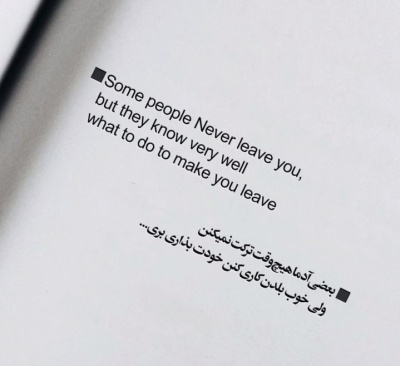 ■Some people Never leave you,
but they know very well
what to do to make you leave
■ بعضی آدما هیچوقت ترکت نمیکنن
ولی خوب بلدن کاری کنن خودت بذاری بری...